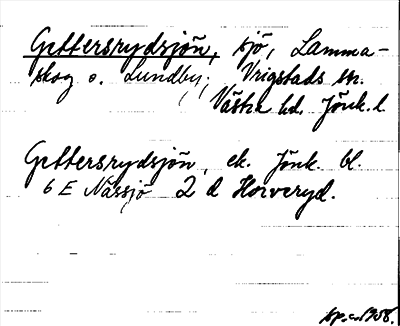 Gettersrydsjön, sjö, Lamma-
skog o. Lundby; Vrigstads sn.
Västra hd. Jönk. l.
Gettersrydsjön, ek. Jönk. bl.
6 E Nässjö 2 d Horveryd.